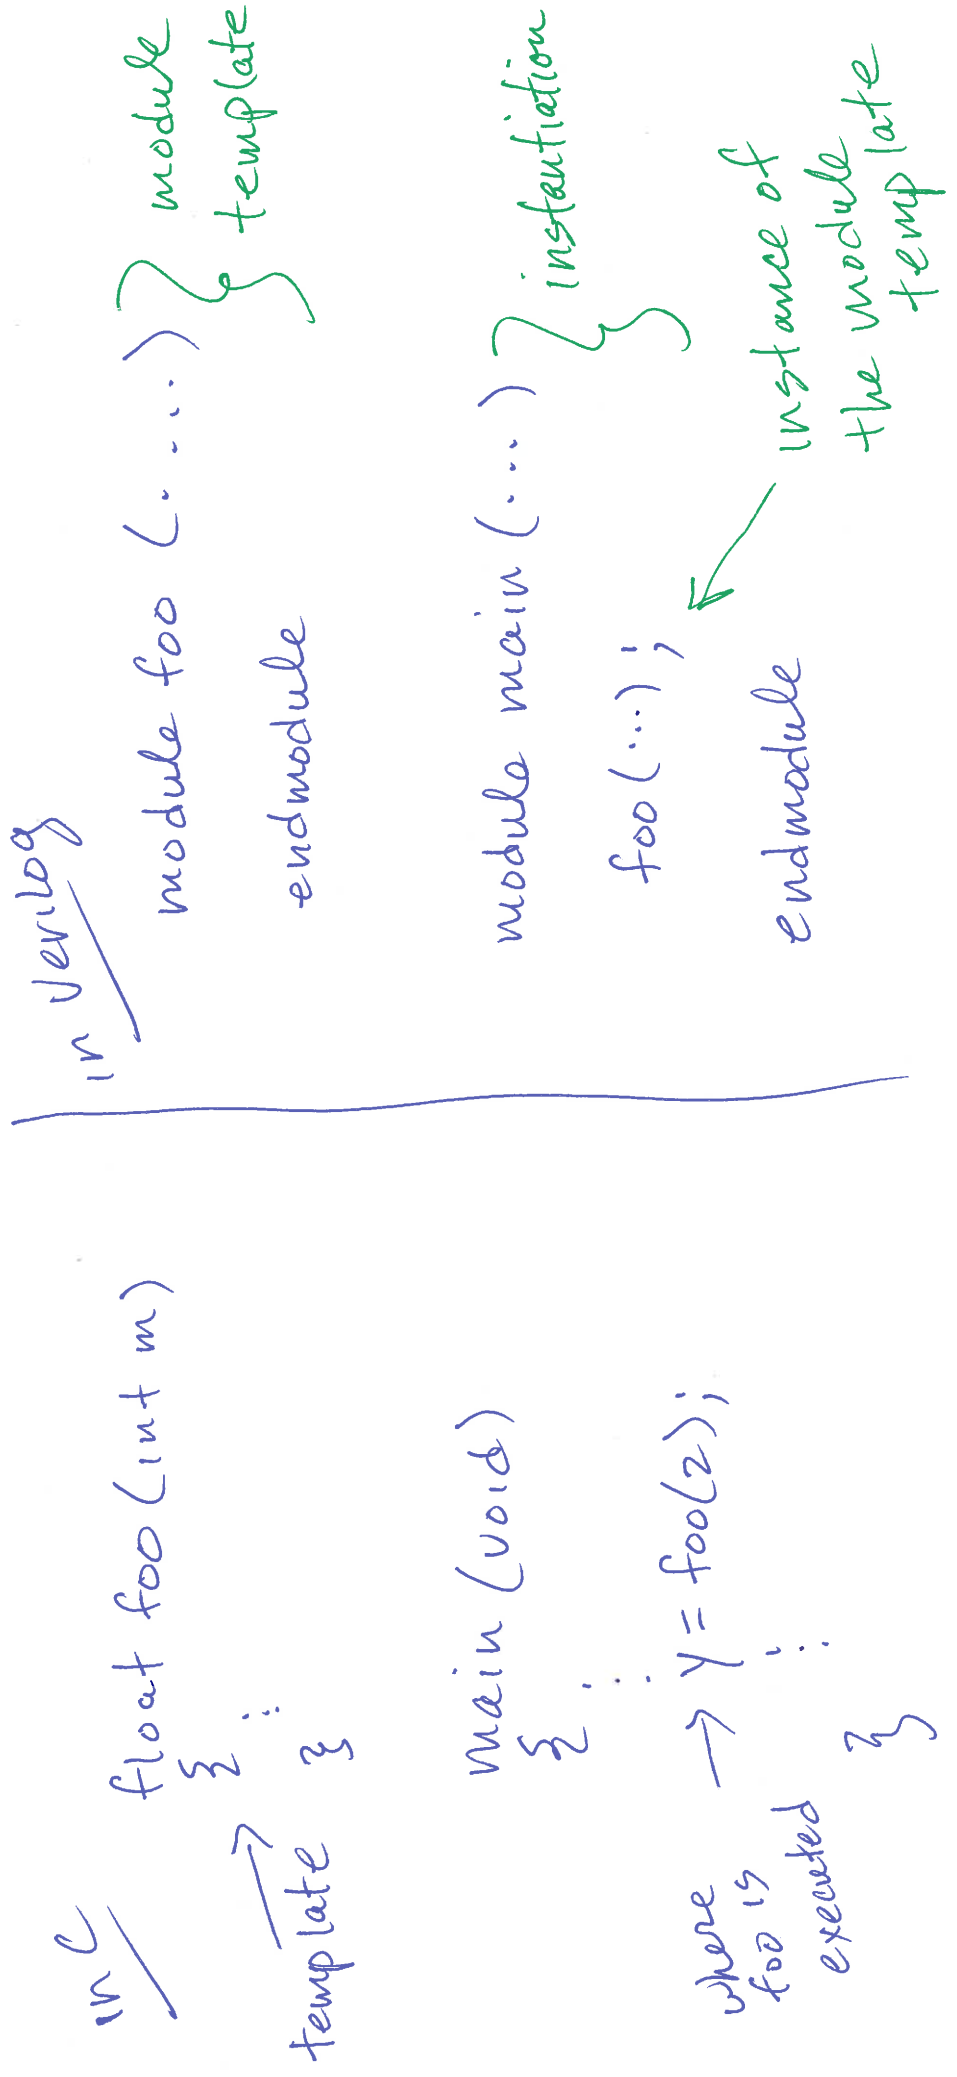 in C
float foo (int m)
{
⋮
}
template
main (void)
{
⋮
y = foo(2);
⋮
}
where
foo is
executed
in Verilog
module foo (....)
endmodule
module
template
module main (...)
foo (...);
endmodule
instantiation
instance of
the module
template